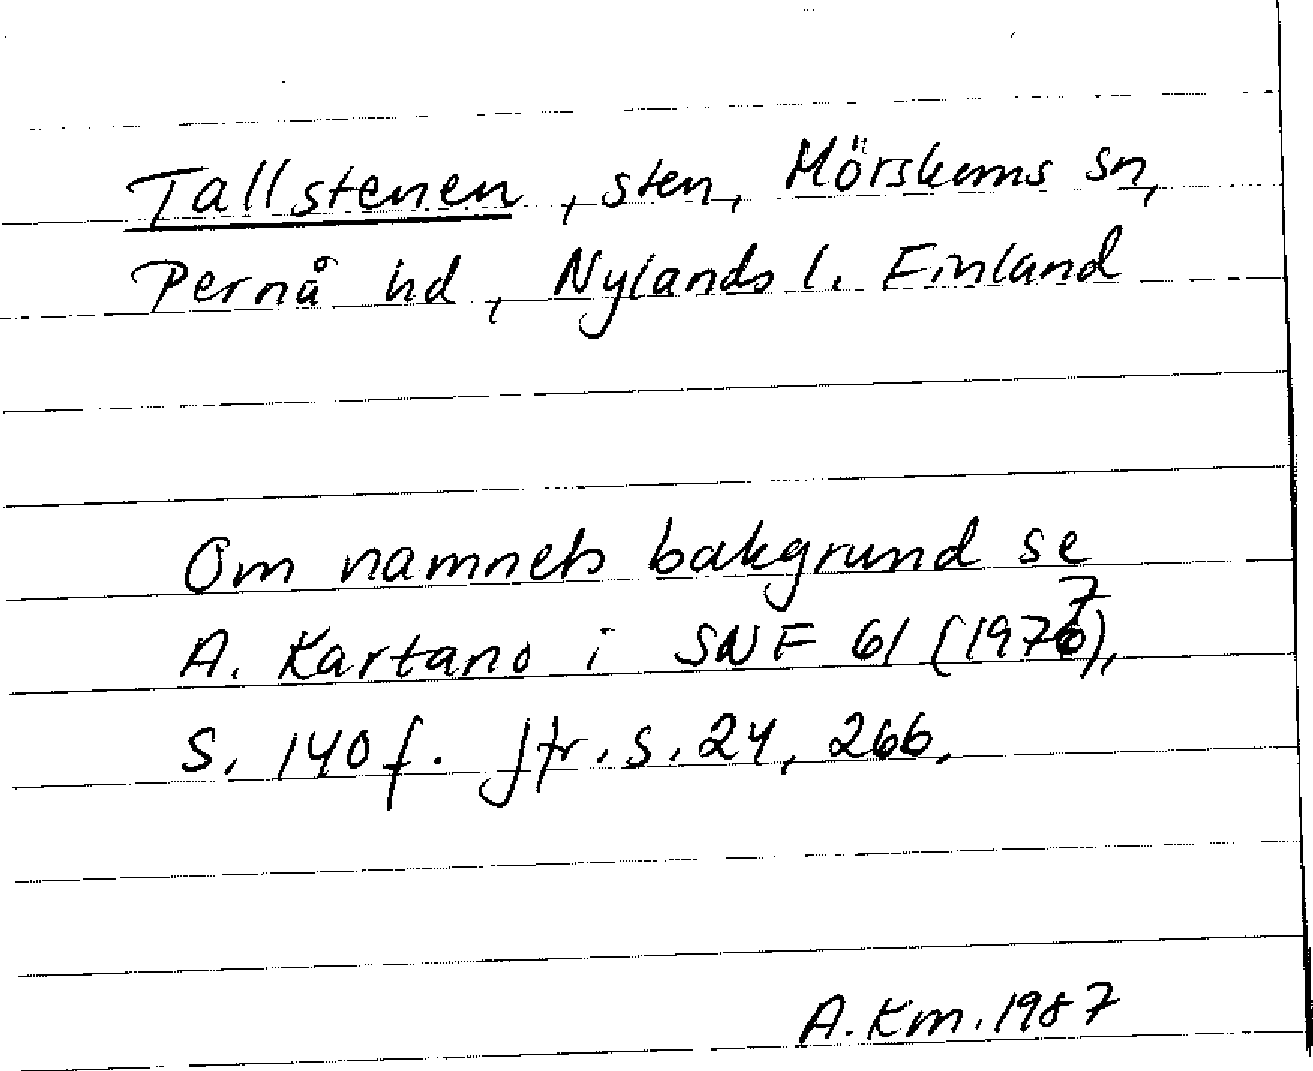 Tallstenen, sten, Mörskoms sn,
Pernå hd, Nylands l. Finland
Om namnets bakgrund se
A. Kartano i SNF 61 (1977),
S. 140 f. Jfr. s. 24, 266.
A. Km. 1987